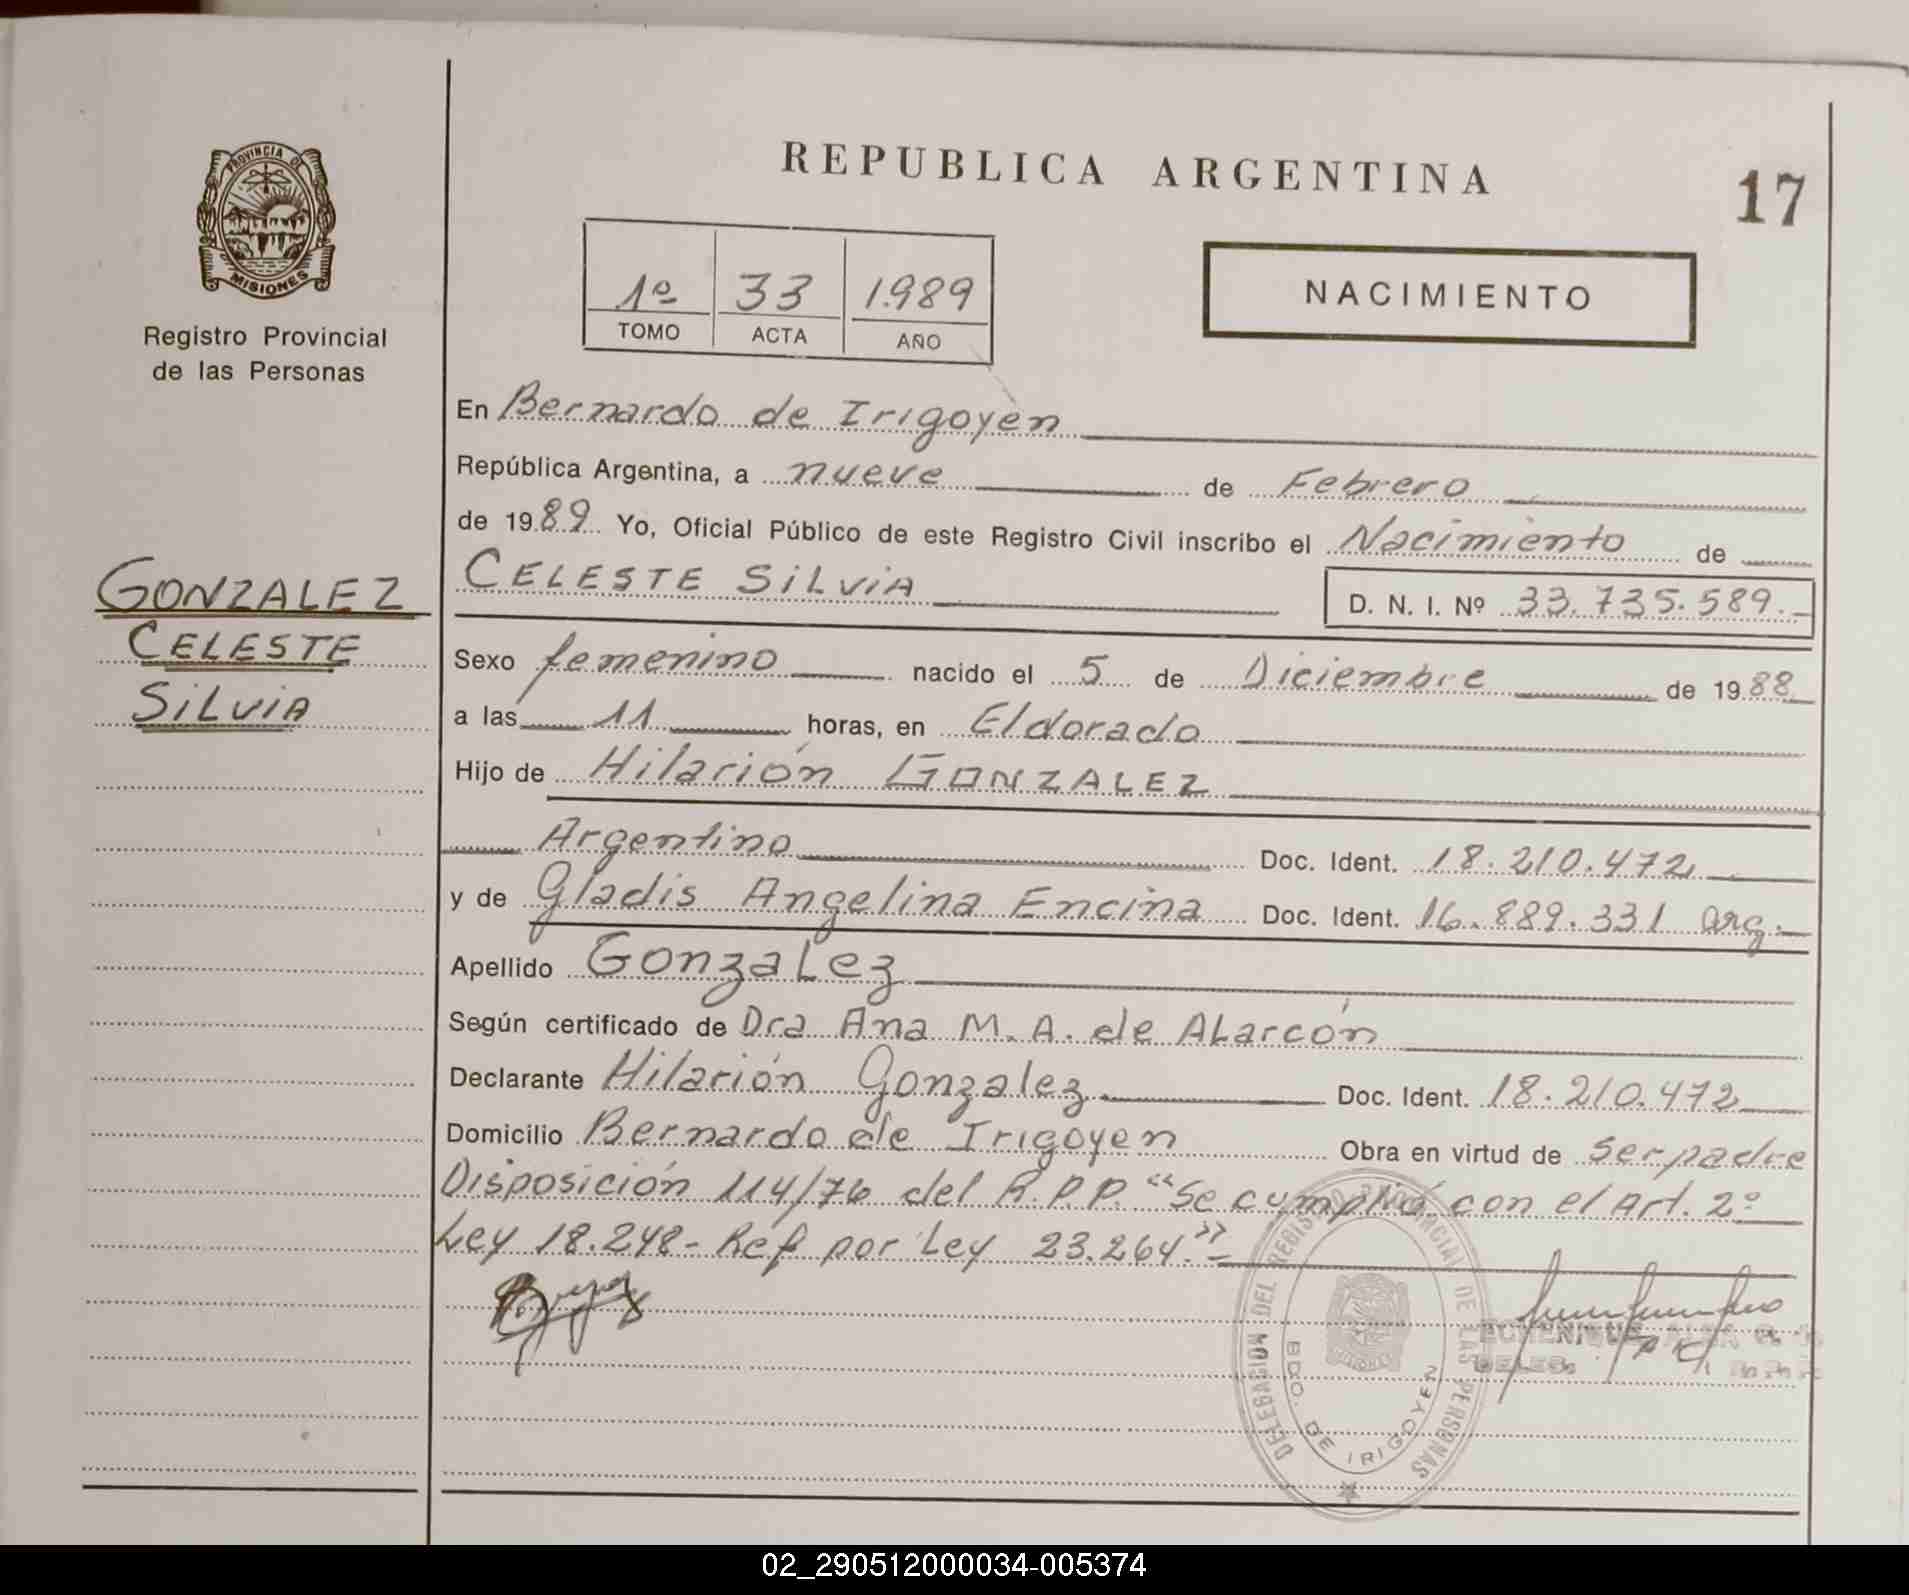 PROVINCIA DE
MISIONES
Registro Provincial
de las Personas
GONZALEZ
CELESTE
SILVIA
REPUBLICA ARGENTINA
17
1º 33 1.989
TOMO ACTA AÑO
NACIMIENTO
En Bernardo de Irigoyen
República Argentina, a nueve de Febrero
de 1989 Yo, Oficial Público de este Registro Civil inscribo el Nacimiento de
CELESTE SILVIA D. N. I. Nº 33.735.589.-
Sexo femenino nacido el 5 de Diciembre de 1988
a las 11 horas, en Eldorado
Hijo de Hilarión GONZALEZ
Argentino Doc. Ident. 18.210.472
y de Gladis Angelina Encina Doc. Ident. 16.889.331 arg.-
Apellido Gonzalez
Según certificado de Dra Ana M. A. de Alarcón
Declarante Hilarión Gonzalez Doc. Ident. 18.210.472
Domicilio Bernardo de Irigoyen Obra en virtud de ser padre
Disposición 114/76 del R.P.P. "Se cumplió con el Art. 2º
Ley 18.248- Ref por Ley 23.264."-
DELEGACION DEL REGISTRO PROVINCIAL DE LAS PERSONAS
BDO. DE IRIGOYEN
ECHENIQUE
DELEG.
02_290512000034-005374